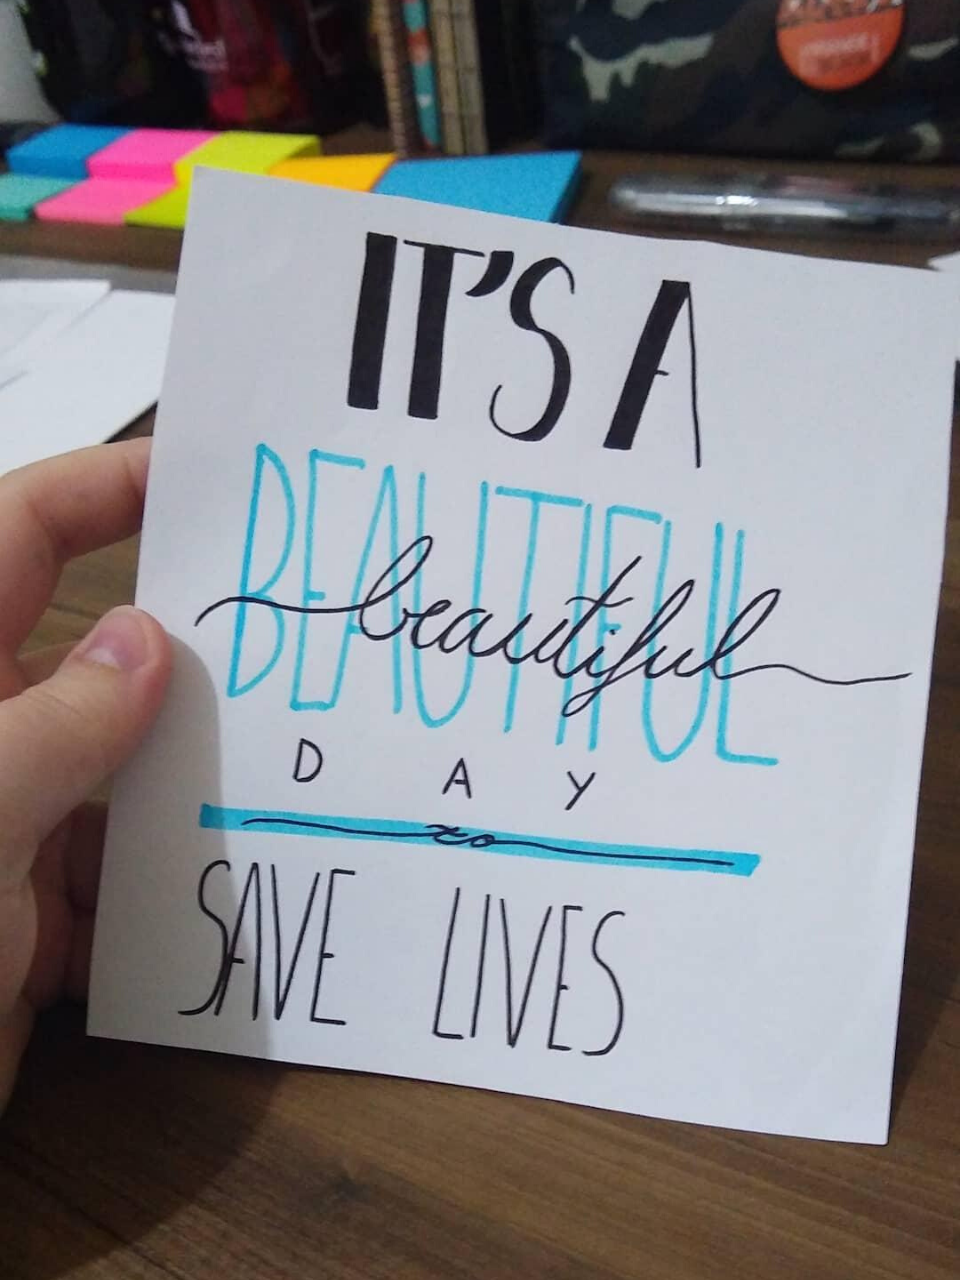 IT'S A
BEAUTIFUL
beautiful
DAY
to
SAVE LIVES